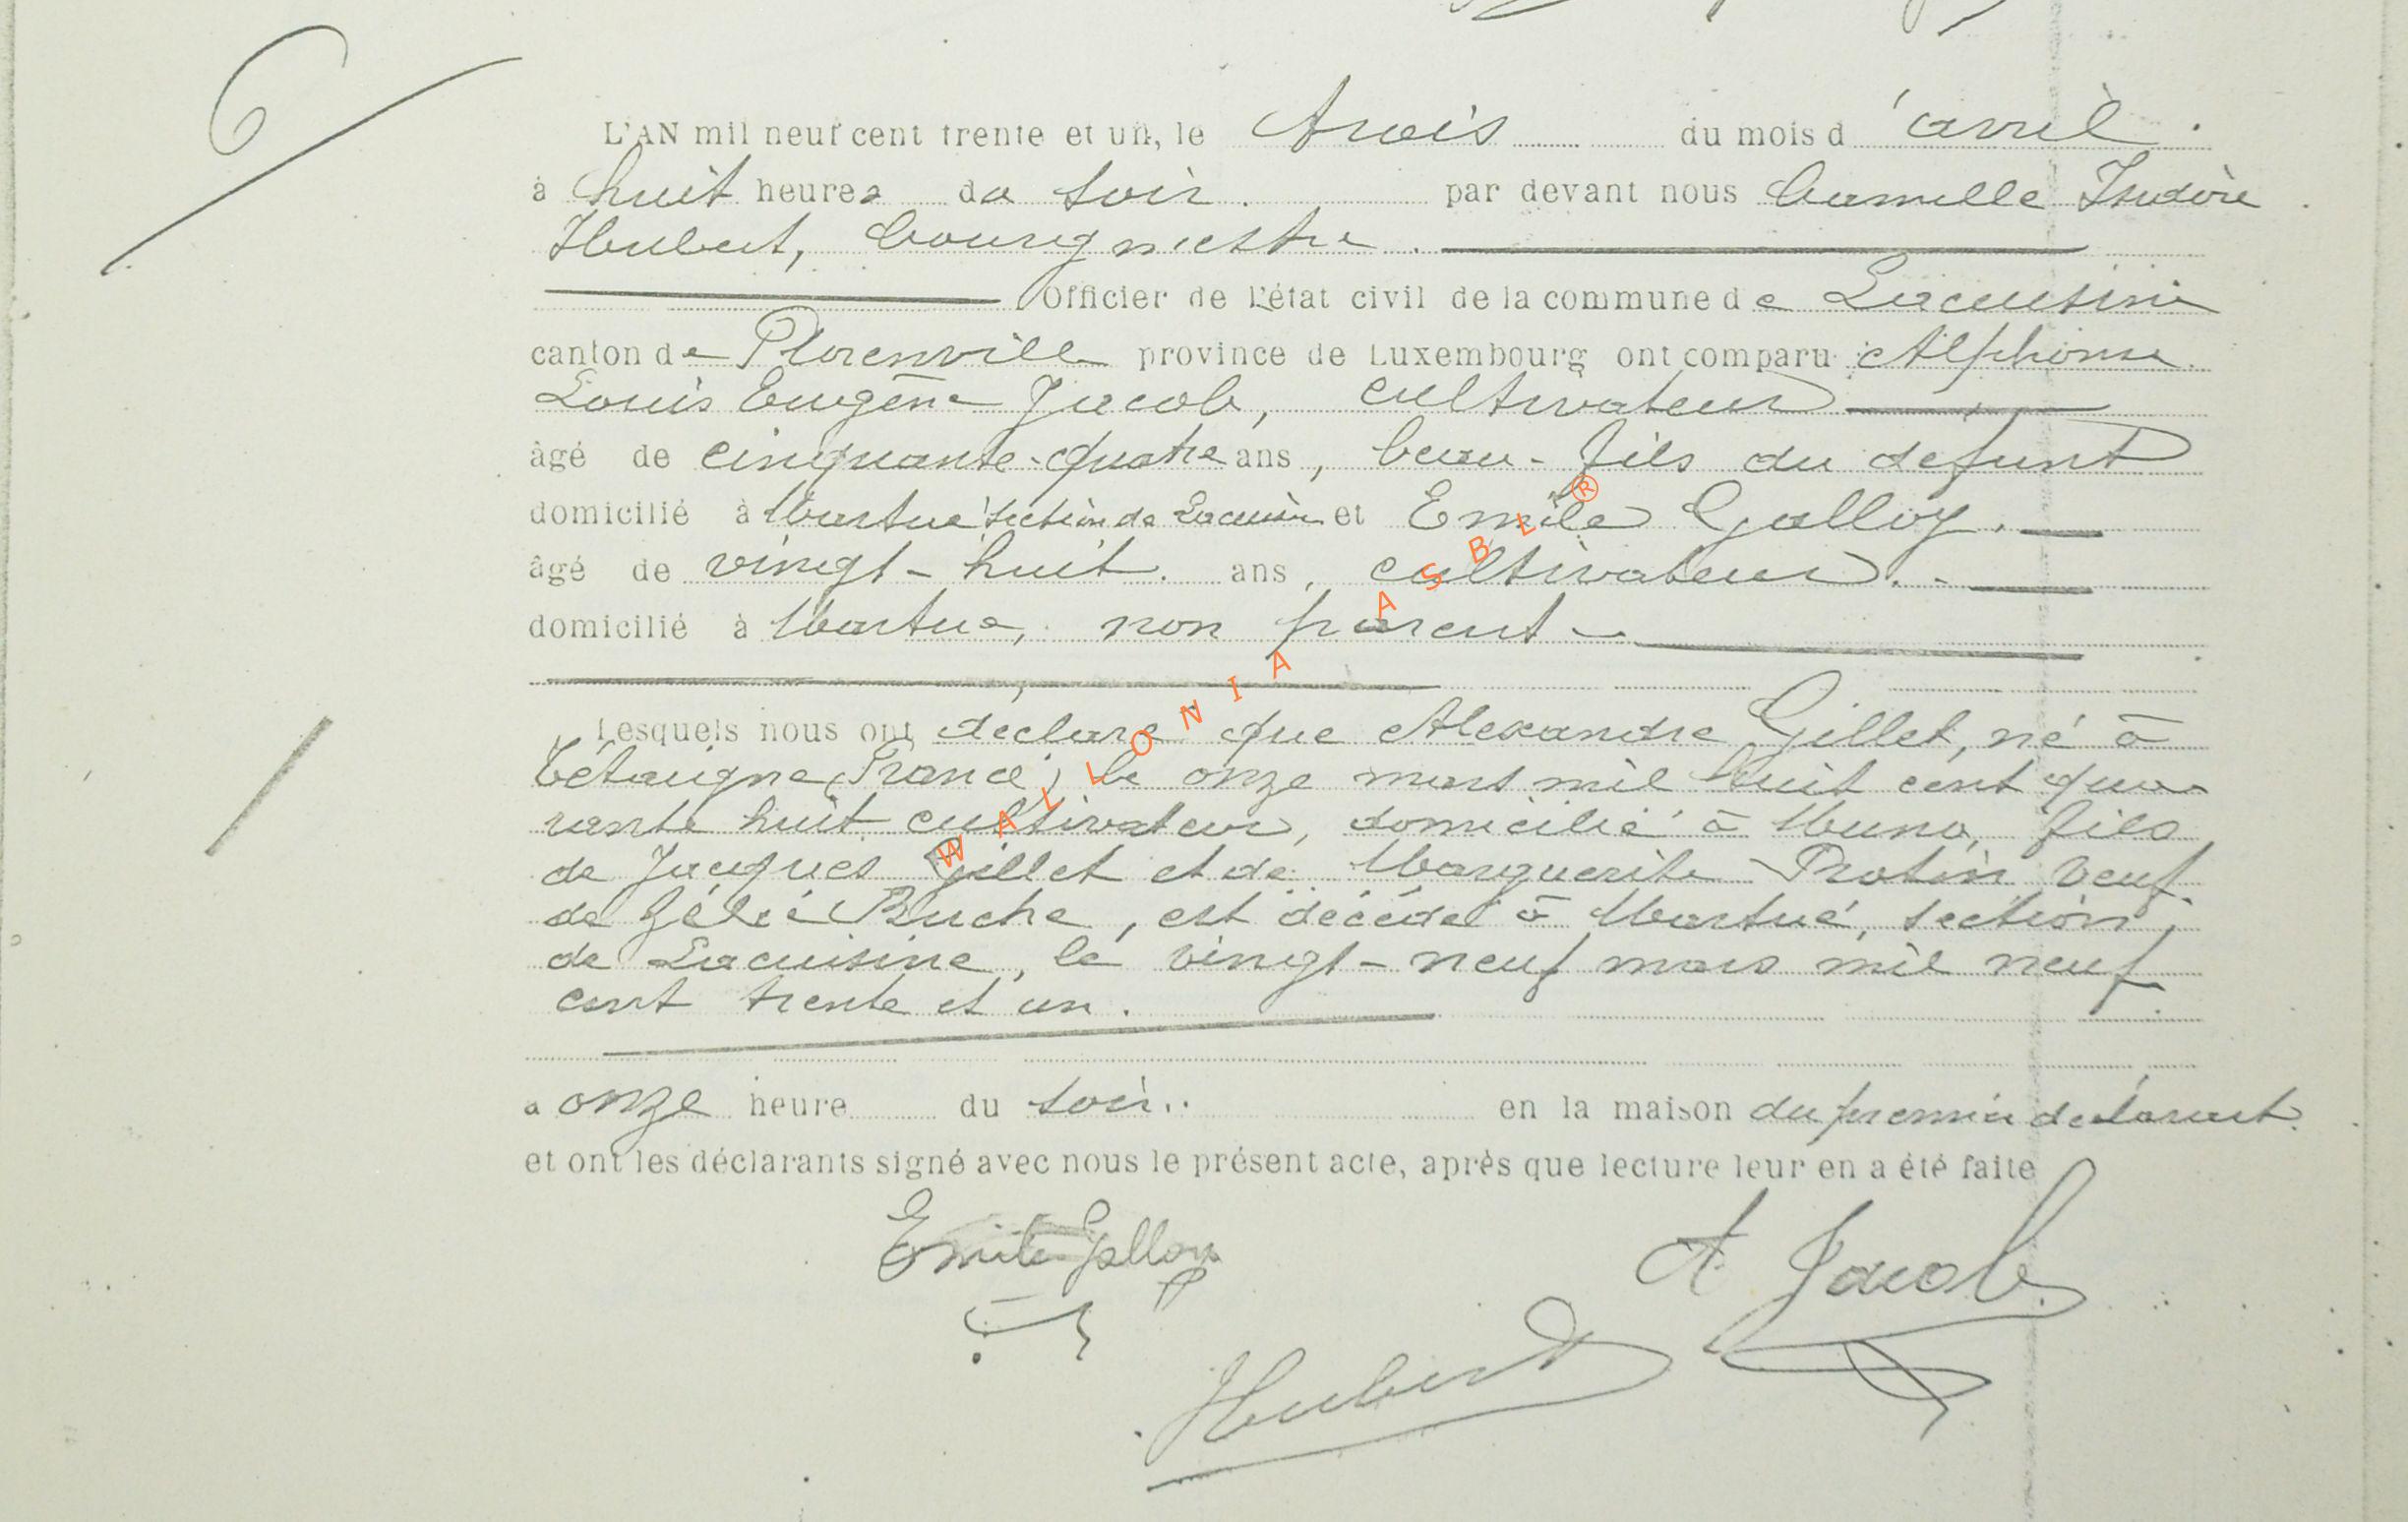 6
L'AN mil neuf cent trente et un, le trois du mois d'avril.
à huit heures du soir. par devant nous Camille Isidore
Hubert, bourgmestre.
Officier de l'état civil de la commune de Lacuisine
canton de Florenville province de Luxembourg ont comparu Alphonse
Louis Eugène Jacob, cultivateur
âgé de cinquante-quatre ans, beau-fils du defunt
domicilié à Martué section de Lacuisine et Emile Galloy.
âgé de vingt-huit. ans, cultivateur.
domicilié à Martué, non parent
Lesquels nous ont declaré que Alexandre Gillet, né à
Tétaigne (France) le onze mars mil huit cent qua-
rante huit cultivateur, domicilié à Muno, fils
de Jacques Gillet et de Marguerite Protin veuf
de Zélie Buche, est décédé à Martué, section
de Lacuisine, le vingt-neuf mars mil neuf
cent trente et un.
à onze heure du soir. en la maison du premier declarant.
et ont les déclarants signé avec nous le présent acte, après que lecture leur en a été faite
Emile Galloy
A Jacob
Hubert
WALLONIA ASBL®